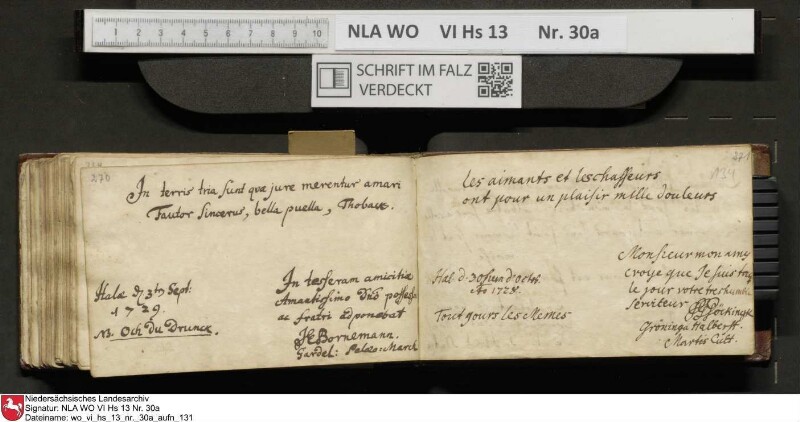 0 1 2 3 4 5 6 7 8 9 10
NLA WO VI Hs 13 Nr. 30a
SCHRIFT IM FALZ
VERDECKT
270
In terris tria sunt quæ jure merentur amari
Fautor Sincerus, bella puella, Thobac.
Halæ d 3ten Sept:
1729.
NB. Och Du Drunck.
In tesseram amicitiæ
Amantissimo Dno possessori
ac fratri adponebat
Bornemann.
Gardel: Palæo-March
271
134
Les aimants et les chasseurs
ont pour un plaisir mille douleurs
Hal. d. 30 d'Octb.
Ao 1728.
Toutjours les Memes
Monsieur mon amy
croye que Je suis
le jour votre tres humble
Serviteur
Gröninga Halberst.
Martis Cult.
Niedersächsisches Landesarchiv
Signatur: NLA WO VI Hs 13 Nr. 30a
Dateiname: wo_vi_hs_13_nr._30a_aufn_131